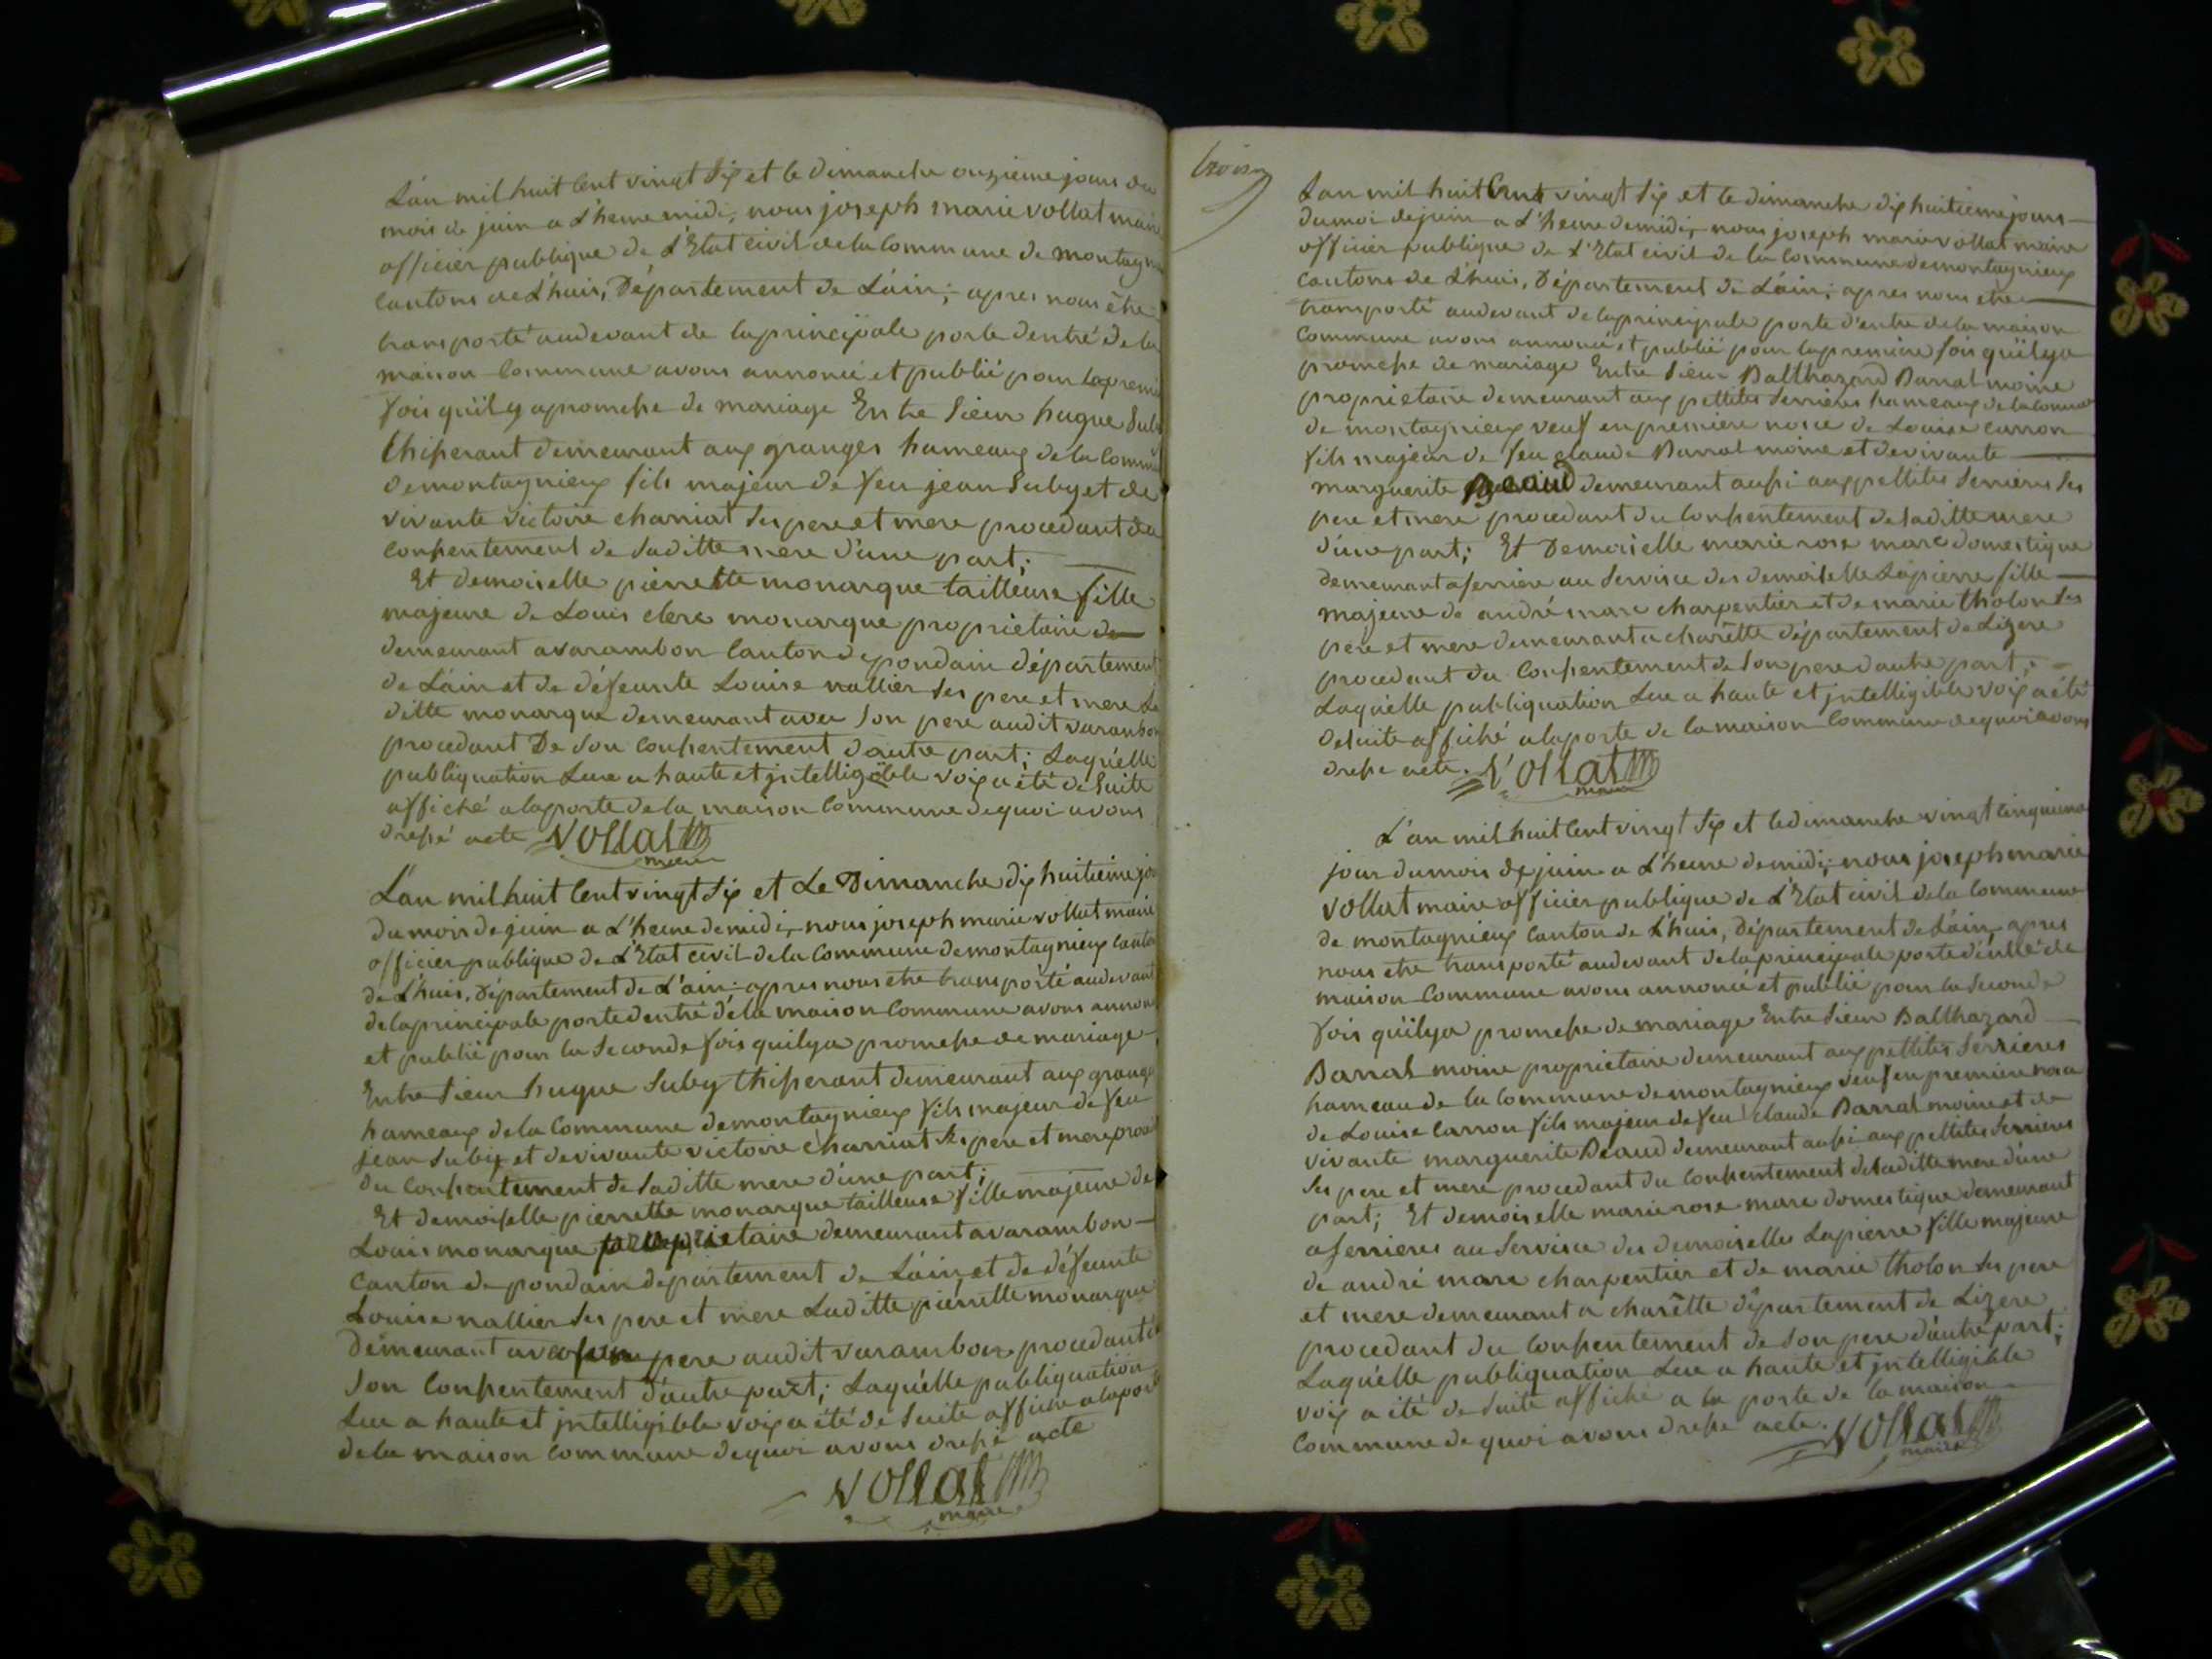 L'an mil huit Cent vingt Six et le dimanche onzieme jour du
mois de juin a L'heure midi, nous joseph marie vollat maire
officier publique de L'Etat civil de la Commune de montagni
Cantons de L'huis, Département de L'ain; apres nous être
transporté audevant de la principale porte dentré de la
maison Commune avons annoncé et publié pour la premi
fois qu'il y a promesse de mariage Entre Sieur hugue Sub
thisserant demeurant aux granges hameaux de la Commu
de montagnieux fils majeur de feu jean Suby et de
vivante victoire charniat Ses pere et mere procedant du
Consentement de Saditte mere d'une part;
Et demoiselle pierrette monarque tailleuse fille
majeure de Louis clerc monarque proprietaire de
demeurant avarambon Canton de pondain département
de L'ain et de défeunte Louise nallier Ses pere et mere La
ditte monarque demeurant avec Son pere audit varambon
procedant De Son Consentement d'autre part; Laquélle
publiquation Lue a haute et jntelligible voix a été de Suite
affiché a la porte de la maison Commune dequoi avons
dressé acte Vollat
maire
L'an mil huit Cent vingt Six et Le Dimanche dix huitieme jou
du mois de juin a L'heure de midi, nous joseph marie vollat maire
officier publique de L'Etat civil de la Commune de montagnieux Canton
de L'huis, Département de L'ain; apres nous etre transporté audevant
de la principale porte dentré de la maison Commune avons annon
et publié pour la Seconde fois quil y a promesse de mariage
Entre Sieur hugue Suby thisserant demeurant aux grange
hameaux de la Commune de montagnieux fils majeur de feu
jean Suby et de vivante victoire charniat Ses pere et mere proce
du Consentement de Saditte mere d'une part;
Et demoiselle pierrette monarque tailleuse fille majeure de
Louis monarque proprietaire demeurant avarambon
Canton de pondain département de L'ain et de défeunte
Louise nallier Ses pere et mere Laditte pierrette monarque
demeurant avec pere audit varambon procedant
Son Consentement d'autre part; Laquélle publiquation
Lue a haute et jntelligible voix a été de Suite affiché a la porte
de la maison Commune dequoi avons dressé acte
Vollat
maire
L'an mil huit Cent vingt Six et le dimanche dix huitieme jour
du moi de juin a L'heure de midi, nous joseph marie vollat maire
officier publique de L'Etat civil de la Commune de montagnieux
Cantons de L'huis, Département de L'ain; apres nous etre
transporté audevant de la principale porte d'entre de la maison
Commune avons annoncé et publié pour la premiere fois qu'il y a
promesse de mariage Entre Sieur Balthazard Barral moine
proprietaire demeurant aux pettites Serrieres hameaux de la Commune
de montagnieux veuf en premiere noce de Louise carron
fils majeur de feu claude Barral moine et de vivante
marguerite Beaud demeurant aussi aux pettites Serrieres Ses
pere et mere procedant du Consentement de Saditte mere
d'une part; Et Demoiselle marie rose marc domestique
demeurant aserriere au Service des demoiselle Lapierre fille
majeure de andré marc charpentier et de marie tholon Ses
pere et mere demeurant a charêtte département de Lizere
procedant du Consentement de Son pere dautre part;
Laquélle publiquation Lue a haute et jntelligible voix a été
desuite affiché a la porte de la maison Commune dequoi avons
dresse acte. Vollat
maire
L'an mil huit Cent vingt Six et le dimanche vingt Cinquieme
jour du mois de juin a L'heure de midi; nous joseph marie
vollat maire officier publique de L'Etat civil de la Commune
de montagnieux Canton de L'huis, Département de L'ain, apres
nous etre transporté audevant de la principale porte d'entré de
maison Commune avons annoncé et publié pour la Seconde
fois qu'il y a promesse de mariage Entre Sieur Balthazard
Barral moine proprietaire demeurant aux pettites Serrieres
hameau de la Commune de montagnieux veuf en premiere noce
de Louise Carron fils majeur de feu claude Barral moine et de
vivante marguerite Beaud demeurant aussi aux pettites Serrieres
Ses pere et mere procedant du Consentement de Saditte mere d'une
part; Et demoiselle marie rose marc domestique demeurant
aserrieres au Service des demoiselles Lapierre fille majeure
de andré marc charpentier et de marie tholon Ses pere
et mere demeurant a charêtte département de Lizere
procedant du Consentement de Son pere d'autre part;
Laquélle publiquation Lue a haute et jntelligible
voix a été de Suite affiché a la porte de la maison
Commune de quoi avons dresse acte. Vollat
maire